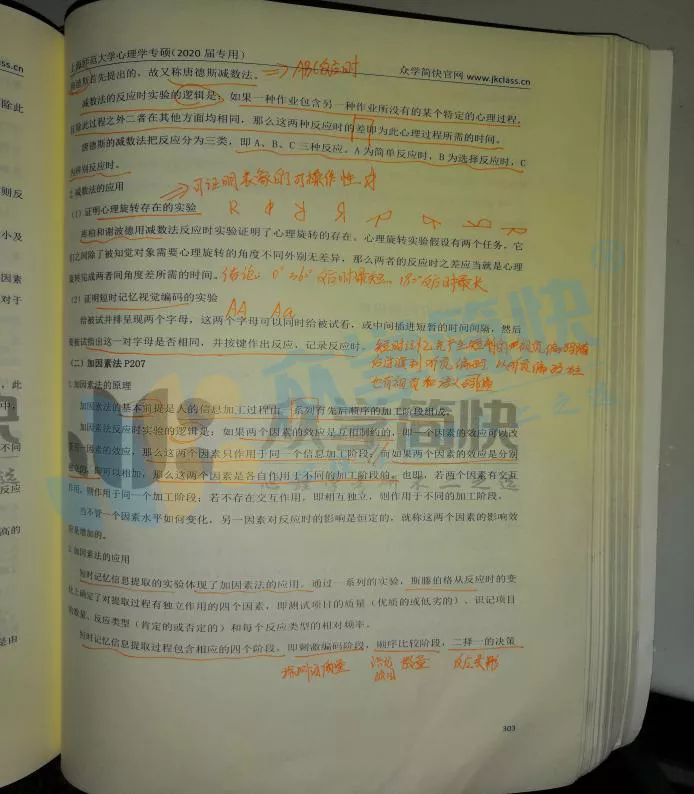 上海师范大学心理学专硕(2020 届专用)
众学简快官网 www.jkclass.cn
德斯首先提出的，故又称唐德斯减数法。 => ABC反应时
减数法的反应时实验的逻辑是：如果一种作业包含另一种作业所没有的某个特定的心理过程，
且除此过程之外二者在其他方面均相同，那么这两种反应时的差即为此心理过程所需的时间。
唐德斯的减数法把反应分为三类，即 A、B、C 三种反应。A 为简单反应时，B 为选择反应时，C
为辨别反应时。
2.减数法的应用 => 可证明表象的可操作性
(1) 证明心理旋转存在的实验
库柏和谢波德用减数法反应时实验证明了心理旋转的存在。心理旋转实验假设有两个任务，它
们之间除了被知觉对象需要心理旋转的角度不同外别无差异，那么两者的反应时之差应当就是心理
旋转完成两者间角度差所需的时间。结论：0° 360° 反应时最短，180°反应时最长
(2) 证明短时记忆视觉编码的实验
AA Aa
给被试并排呈现两个字母，这两个字母可以同时给被试看，或中间插进短暂的时间间隔，然后
要被试指出这一对字母是否相同，并按键作出反应，记录反应时。
也有视觉和
(二) 加因素法 P207
1.加因素法的原理
加因素法的基本前提是人的信息加工过程由一系列有先后顺序的加工阶段组成。
加因素法反应时实验的逻辑是：如果两个因素的效应是互相制约的，即一个因素的效应可以改
变另一因素的效应，那么这两个因素只作用于同一个信息加工阶段；而如果两个因素的效应是分别
独立的，即可以相加，那么这两个因素是各自作用于不同的加工阶段的。也即，若两个因素有交互
作用，则作用于同一个加工阶段；若不存在交互作用，即相互独立，则作用于不同的加工阶段。
当不管一个因素水平如何变化，另一因素对反应时的影响是恒定的，就称这两个因素的影响效
应是增加的。
2.加因素法的应用
短时记忆信息提取的实验体现了加因素法的应用。通过一系列的实验，斯腾伯格从反应时的变
化上确定了对提取过程有独立作用的四个因素，即测试项目的质量（优质的或低劣的）、识记项目
的数量、反应类型（肯定的或否定的）和每个反应类型的相对频率。
短时记忆信息提取过程包含相应的四个阶段，即刺激编码阶段，顺序比较阶段，二择一的决策
反应类型
303
众学简快